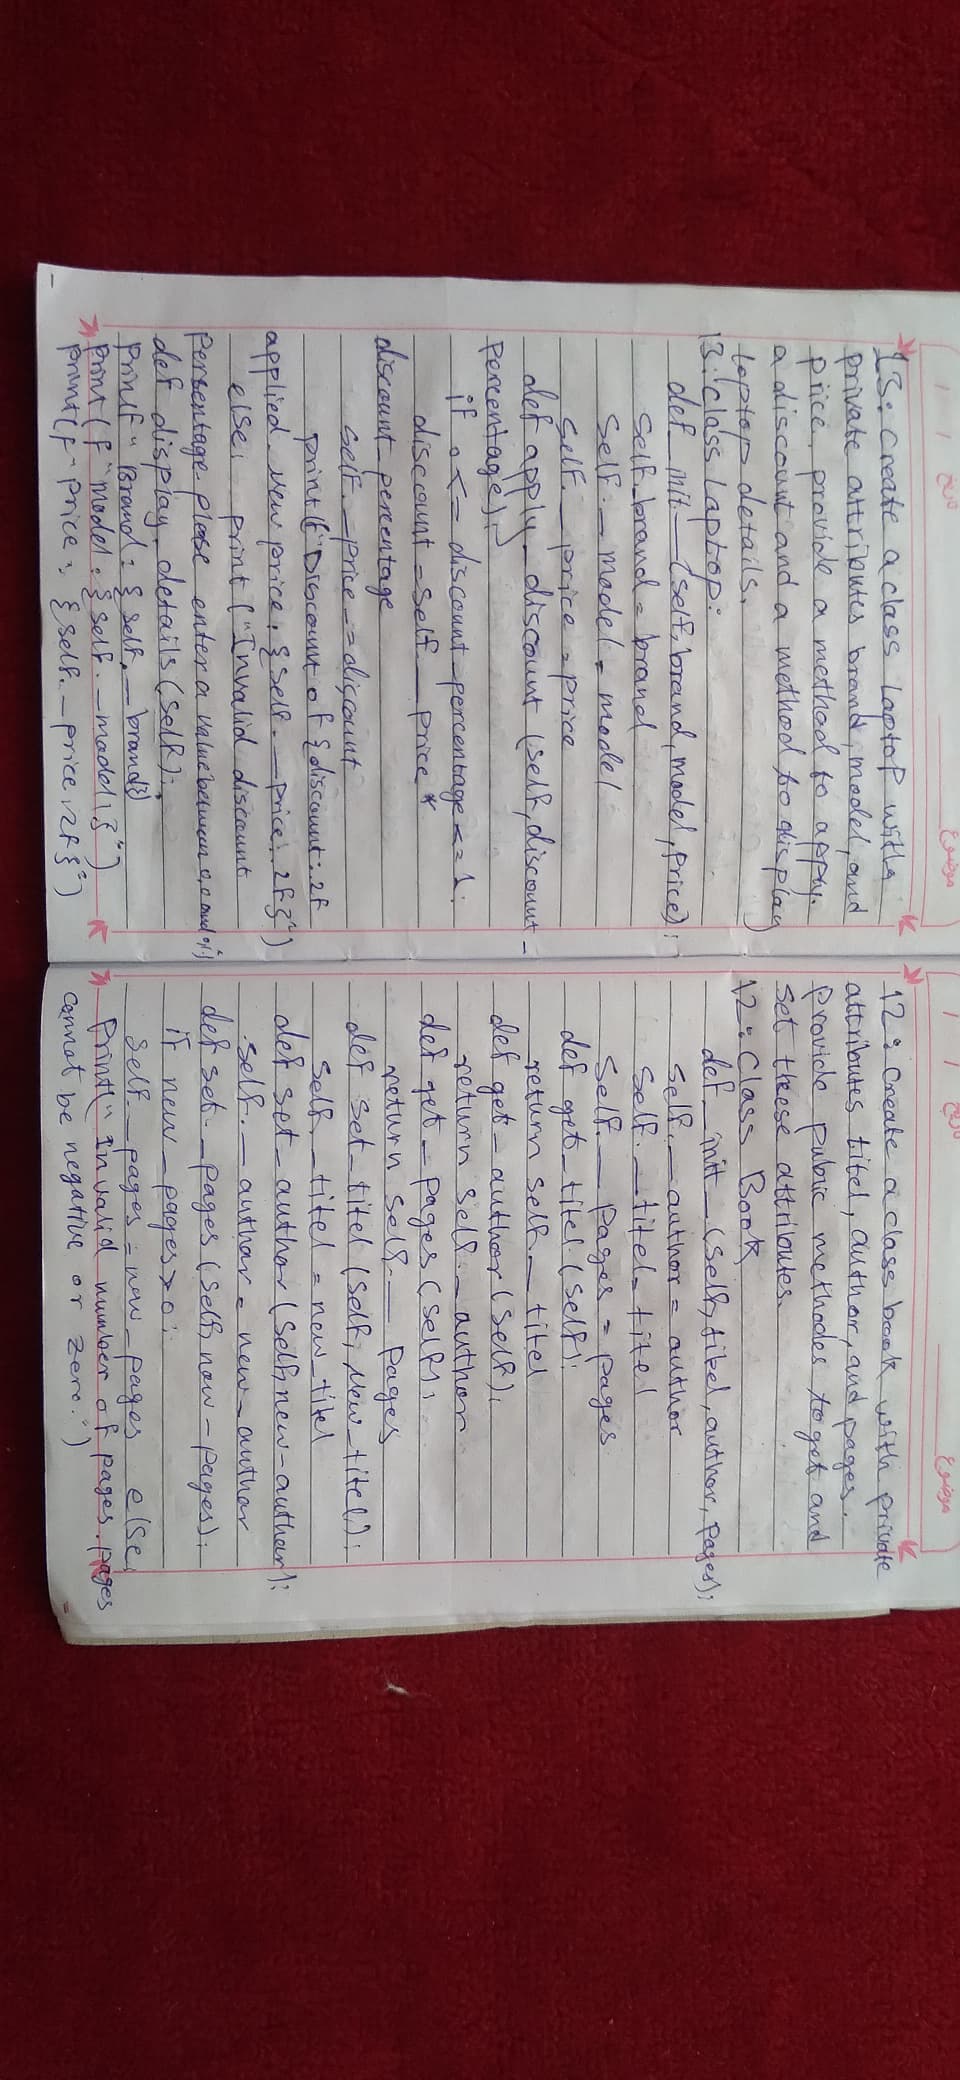 13: create a class laptop with
private attributes brand, model, and
price. provide a method to appy
a discount and a method to display
laptop details.
13: class Laptop:
def init__(self, brand, model, price):
self.brand = brand
self.__model = model
self.__price = price
def apply_discount (self, discount_
percentage):
if 0 <= discount_percentage <= 1:
discount = self.__price *
discount_percentage
self.__price -= discount
print(f"Discount of {discount:.2f
applied. New price: {self.__price:.2f}")
else: print("Invalid discount
persentage. please enter a value between 0 and
def display_details(self):
print "Brand: {self.__brand})
print (f "model: {self.__model}")
print(f"price: {self.__price.2f}")
12: create a class book with private
attributes titel, author, and pages.
provide pubic methodes to get and
set these attributes.
12: Class Book
def_init__(self, titel, author, pages):
self.__author = author
self.__titel = titel
self.__pages = pages
def get_titel (self):
return self.__titel
def get_author (self):
return self.__author
def get_pages (self):
return self.__pages
def set_titel (self, new_titel):
self.__titel = new_titel
def set_author (self, new_author):
self.__author = new_author
def set_pages (self, new_pages):
if new_pages > 0:
self.__pages = new_pages else:
print("Invalid number of pages. pages
cannot be negative or zero.")